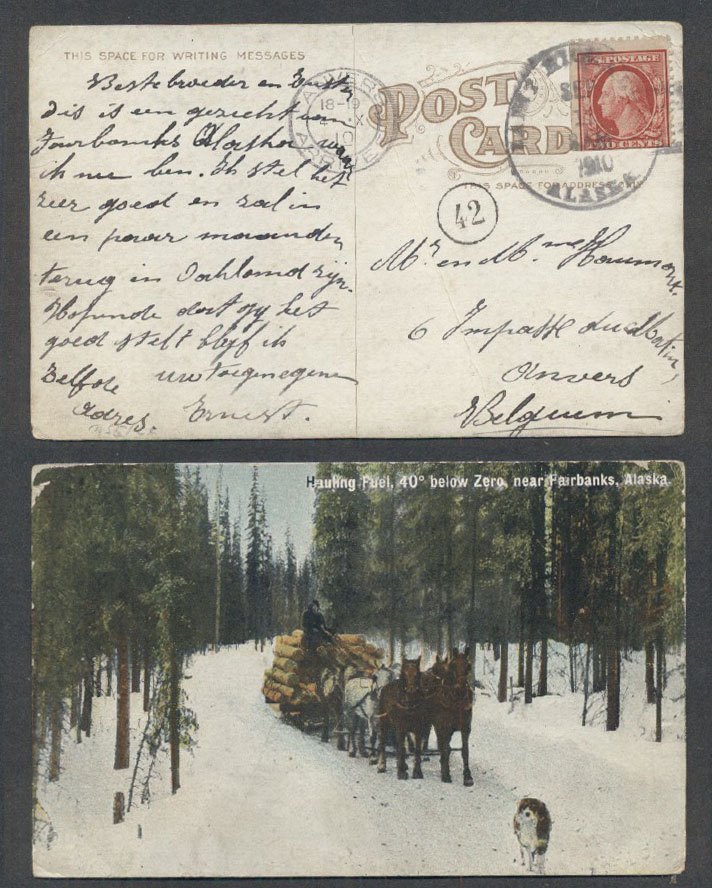 THIS SPACE FOR WRITING MESSAGES
Beste broeder en Zuster
dis is een gezicht van
Fairbanks Alaska waar
ik nu ben. Ik stel het
zeer goed en zal in
een paar maanden
terug in Oakland zijn.
Hopende dat gy het
goed stelt blyf ik
Zelfde uw toegenegene
adres. Ernest.
ANVERS
18-19
4 X
10
ARRIVÉE
POST
CARD
THIS SPACE FOR ADDRESS ONLY
U.S. POSTAGE
TWO CENTS
SEP
1910
ALASKA
42
Mr en Mme Haumont
6 Impasse du
Anvers
Belgium
Hauling Fuel, 40° below Zero, near Fairbanks, Alaska